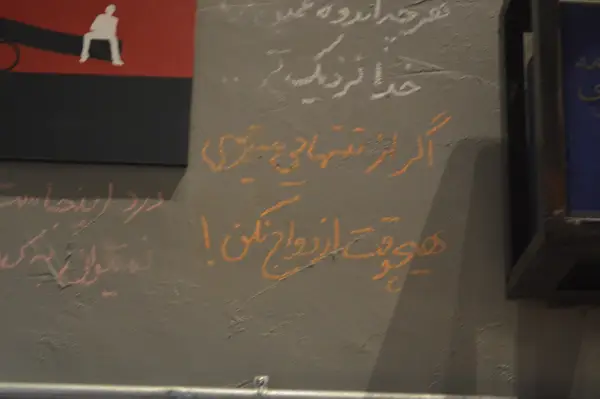 هر چه اندوه عمیق
خدا نزدیک تر ..
اگر از تنهایی میترسی
هیچوقت ازدواج نکن !
درد اینجاست